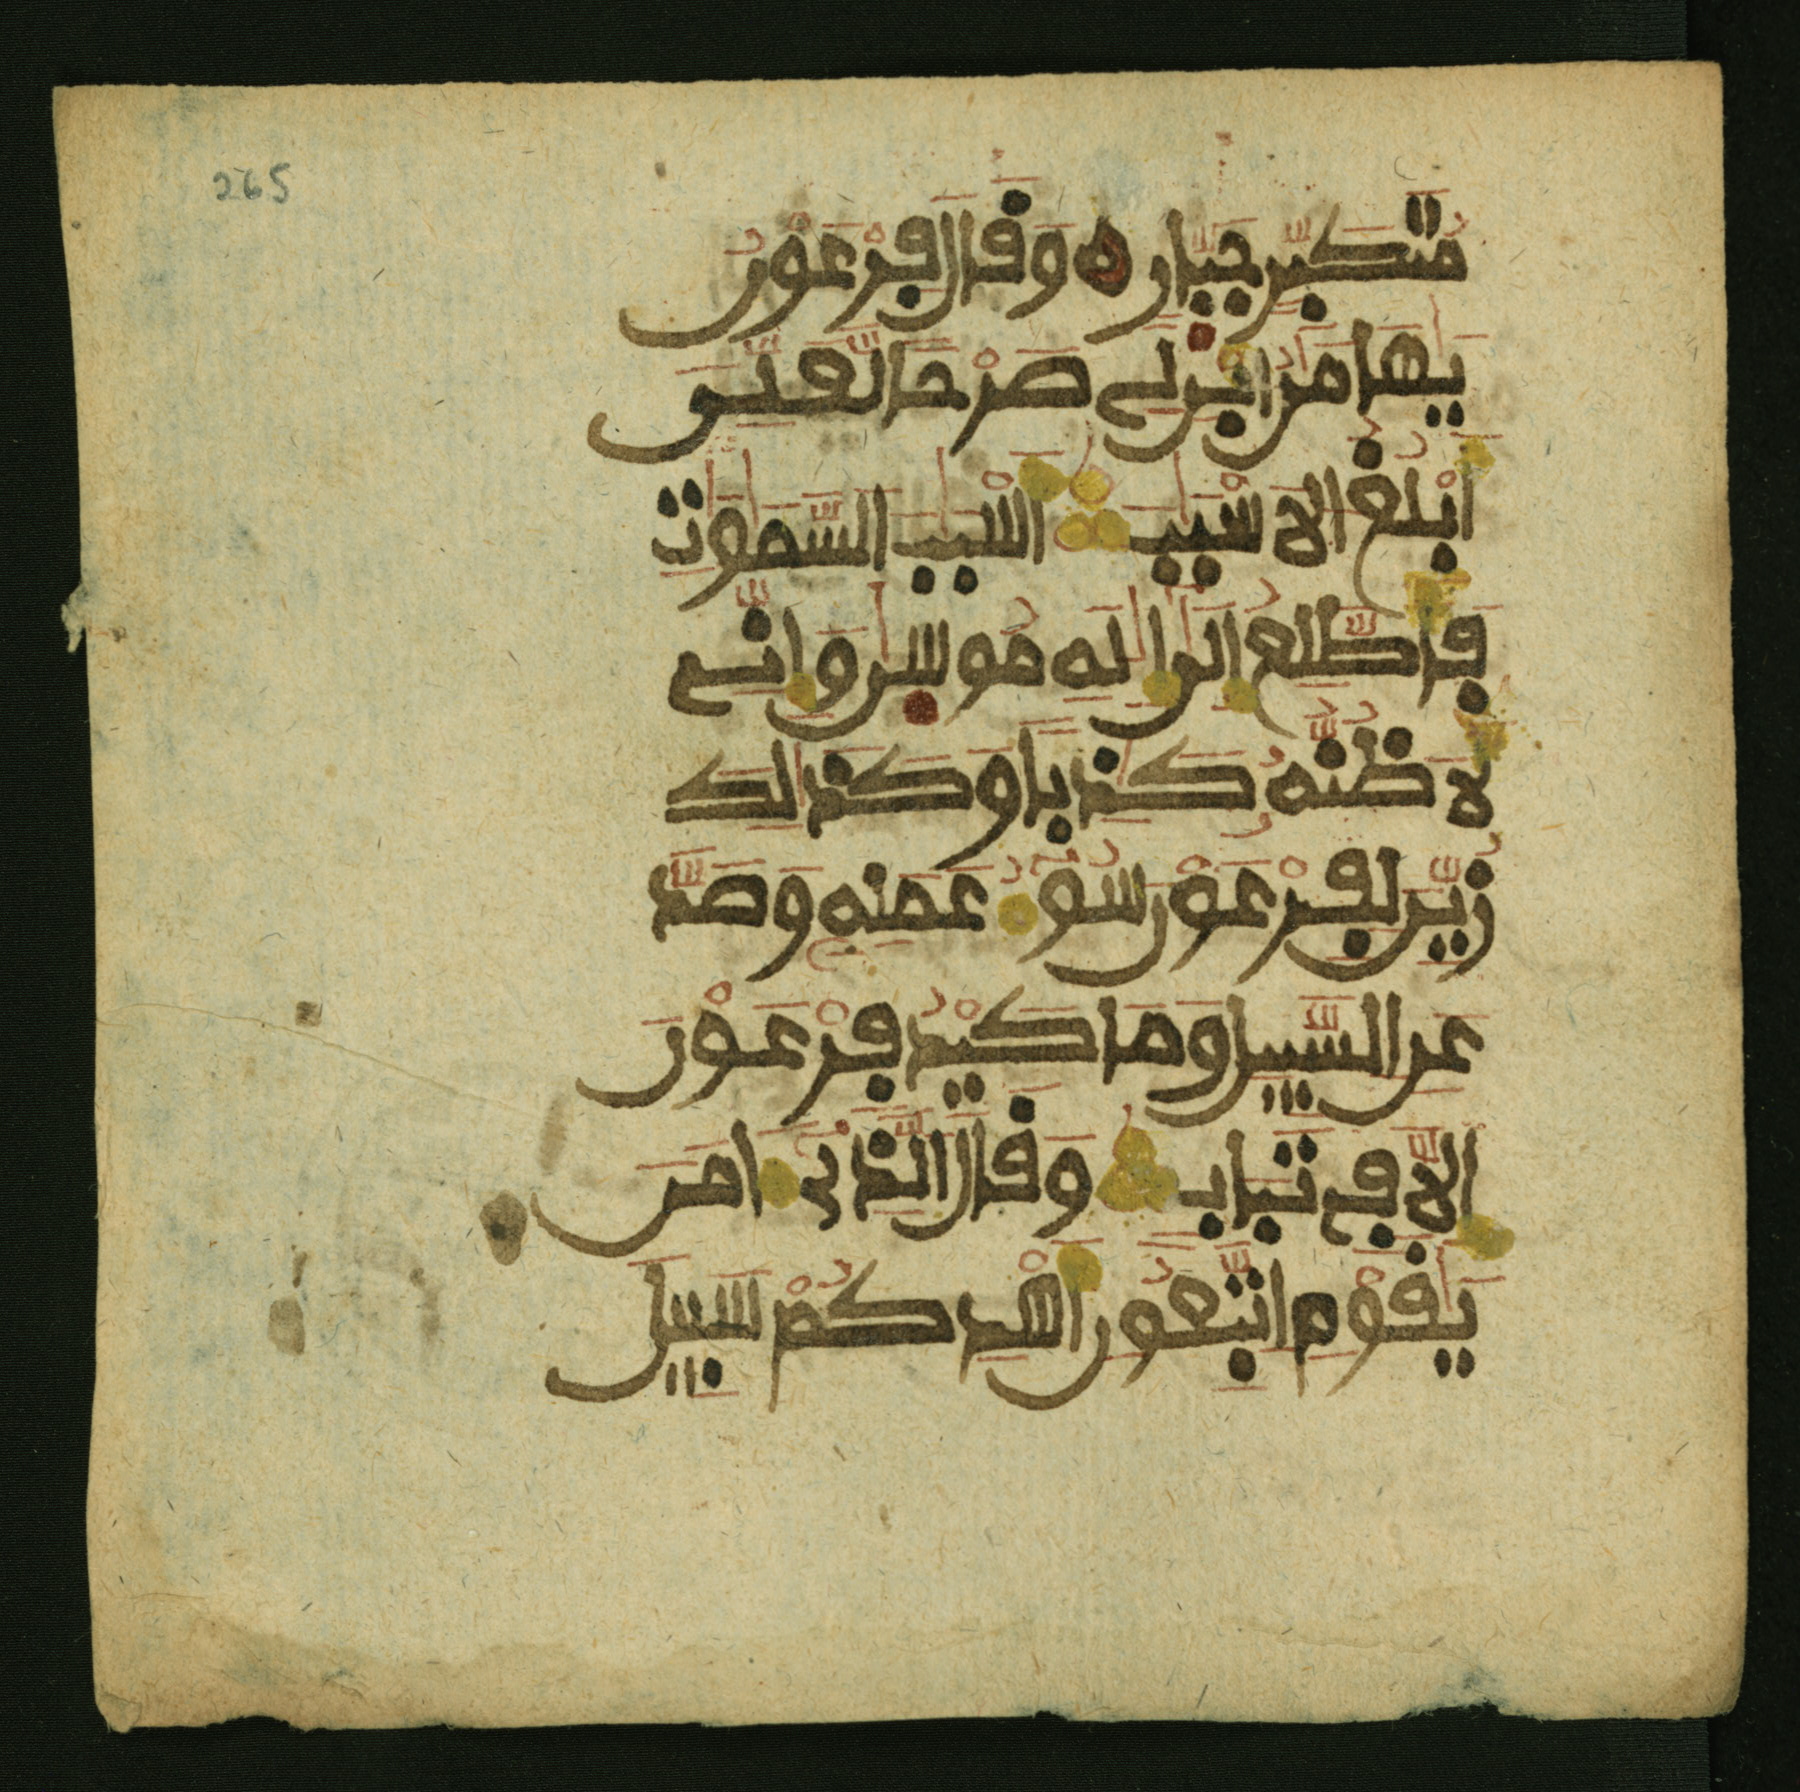 265
مُّتَكَبِّرٍ جَبّٰارٍ ه وَقَالَ فِرْعَوْنُ
يَٰهَامَٰنُ ابْنِ لِے صَرْحاً لَّعَلِّيَ
أَبْلُغُ الَاسْبَٰبَ اَسْبَٰبَ السَّمَٰوَٰتِ
فَأَطَّلِعُ إِلَىٰ إِلَٰهِ مُوسىٰ وَإِنِّے
لَأَظُنُّهُ كَٰذِباً وَكَذَٰلِكَ
زُيِّنَ لِفِرْعَوْنَ سُوٓءُ عَمَلِهِ وَصَدَّ
عَنِ السَّبِيلِ وَمَا كَيْدُ فِرْعَوْنَ
إِلَّا فِے تَبَابٍ وَقَالَ الَّذِے ءَامَنَ
يَٰقَوْمِ اتَّبِعُونِ أَهْدِكُمْ سَبِيلَ